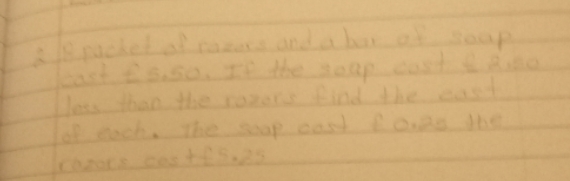 2 packet of razors and a bar of soap
cost £5.50. If the soap cost £
less than the razors find the cost
of each. The soap cost £0.25 the
razors cost £5.25